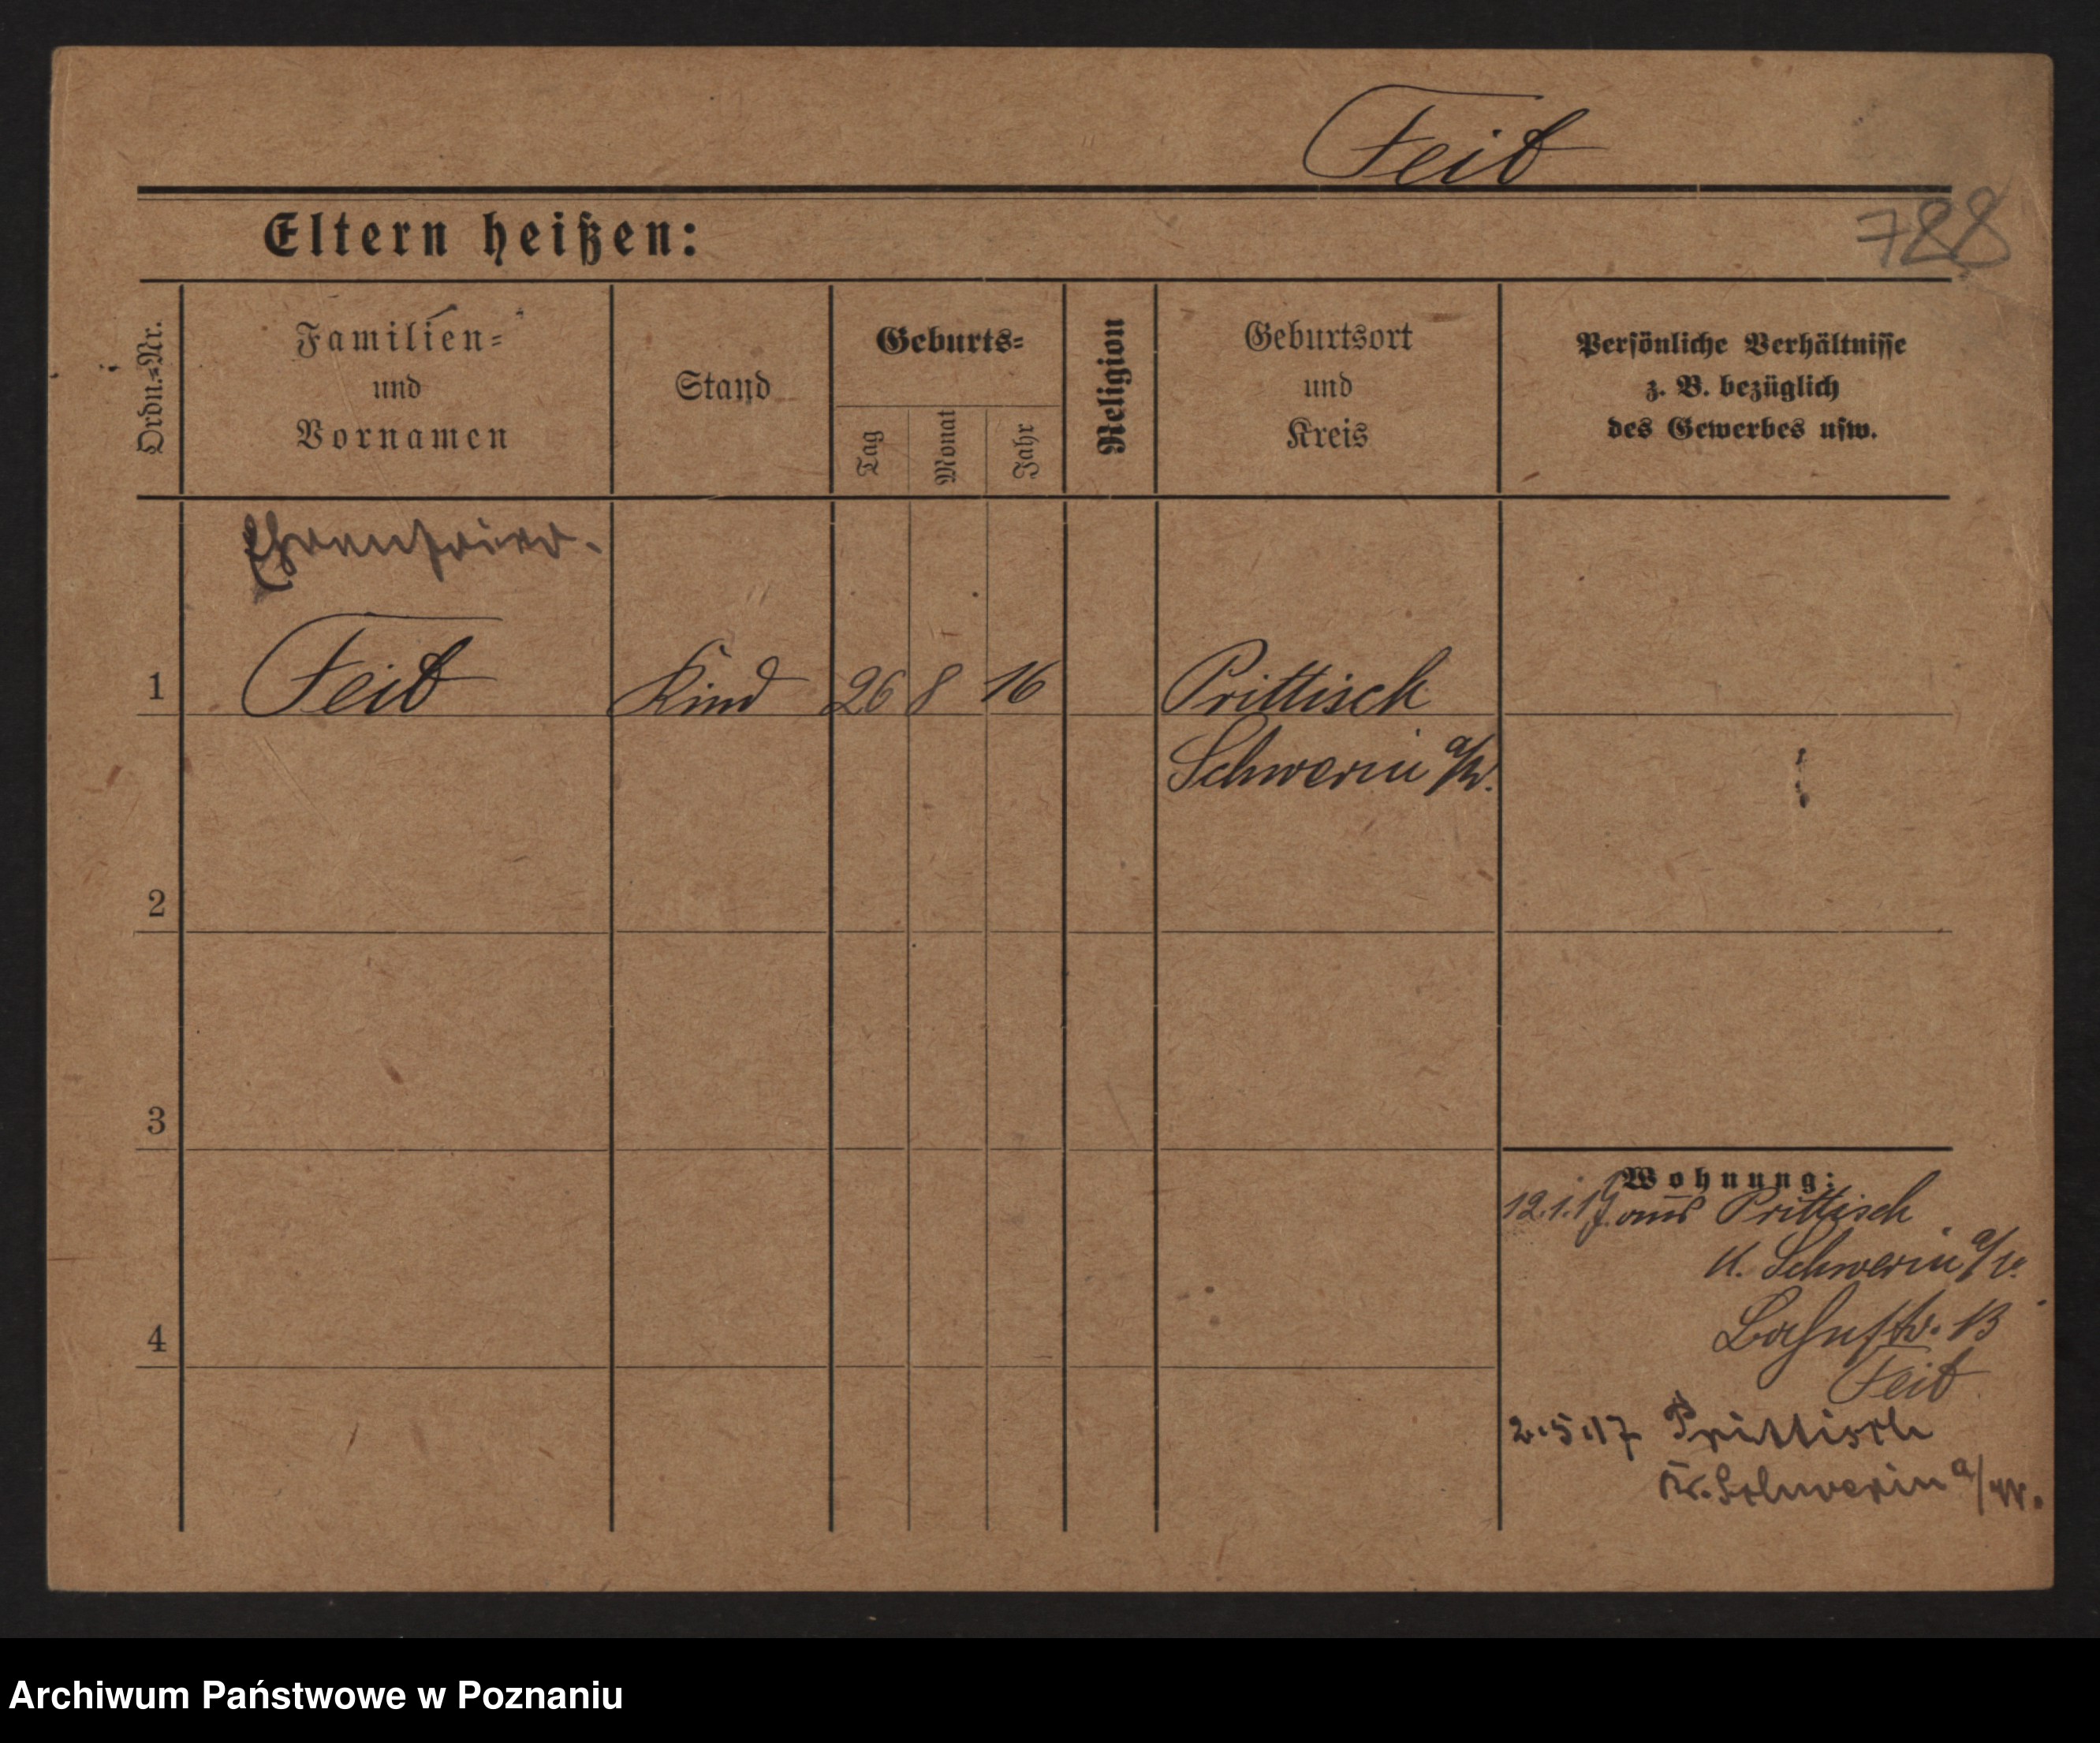 Feib
Eltern heißen:
788
Ordn.-Nr.
Familien-
und
Vornamen
Stand
Geburts-
Tag
Monat
Jahr
Religion
Geburtsort
und
Kreis
Persönliche Verhältnisse
z. B. bezüglich
des Gewerbes usw.
Ehrenfried.
1 Feib Kind 26 8 16 Prittisch
Schwerin a/W.
2
3
4
Wohnung:
12.1.17 aus Prittisch
K. Schwerin a/W.
Bahnstr. 13
Feib
2.5.17 Prittisch
Kr. Schwerin a/W.
Archiwum Państwowe w Poznaniu